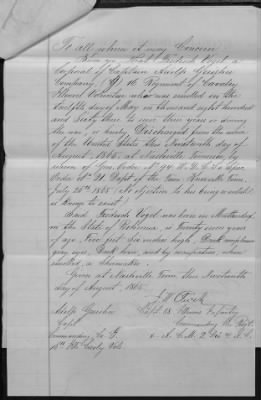 To all whom it may Concern
Know ye That Frederick Vogel a
Corporal of Captain Adolf
Company, (G) 16 Regiment of Cavalry
Illinois Volunteers who was enrolled on the
Twelfth day of May one thousand eight hundred
and Sixty three to serve three years or during
the war, is hereby Discharged from the service
of the United States this Nineteenth day of
August, 1865, at Nashville Tennessee, by
reason of
Order No 21 Dept of the Tenn Knoxville Tenn
July 25th 1865 (No objection to his being reenlisted
is known to exist)
Said Frederick Vogel was born in
in the State of Bohemia, is Twenty seven years
of age, Five feet Six inches high, Dark complexion
gray eyes, Dark hair, and by occupation, when
enrolled, a shoemaker.
Given at Nashville Tenn this Nineteenth
day of August 1865.
Adolf
Capt
Commanding Co G.
16th Ills Cavalry Vols.
Capt 18 Infantry
Commanding the Regt
A. C. M. 2 Div 4 A. C.